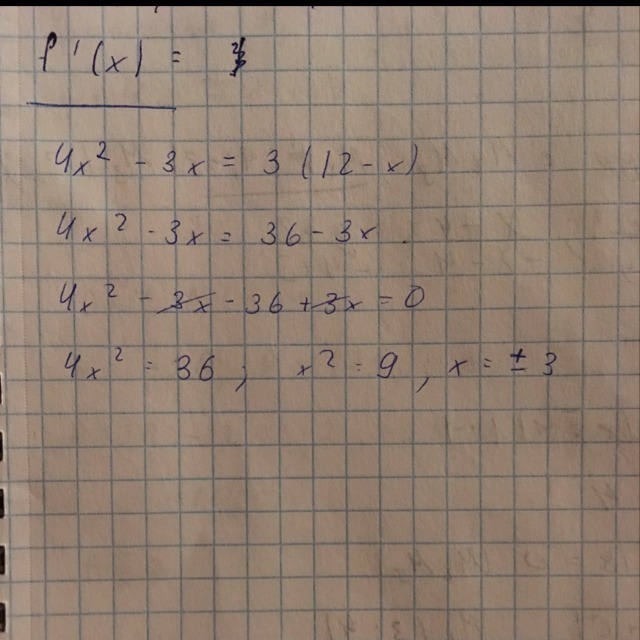 f'(x) =
4x² - 3x = 3 (12 - x)
4x² - 3x = 36 - 3x
4x² - 3x - 36 + 3x = 0
4x² = 36 ; x² = 9 , x = ± 3